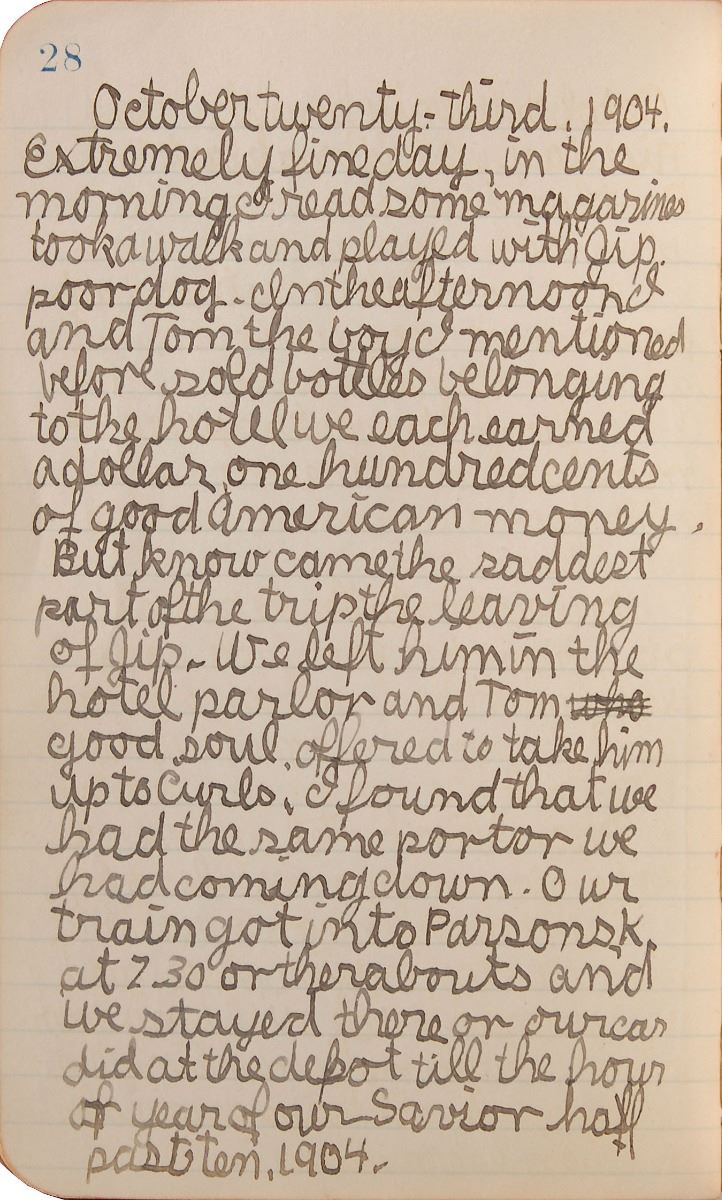 28
October twenty-third. 1904.
Extremely fine day, in the
morning I read some magazines
took a walk and played with Jip.
poor dog. In the afternoon I
and Tom the boy I mentioned
before sold bottles belonging
to the hotel we each earned
a dollar, one hundred cents
of good American money.
But know came the saddest
part of the trip the leaving
of Jip. We left him in the
hotel parlor and Tom who
good soul, offered to take him
up to Curls. I found that we
had the same portor we
had coming down. Our
train got into Parsons K.
at 7.30 or therabouts and
we stayed there or our car
did at the depot till the hour
of year of our Savior half
past ten, 1904.